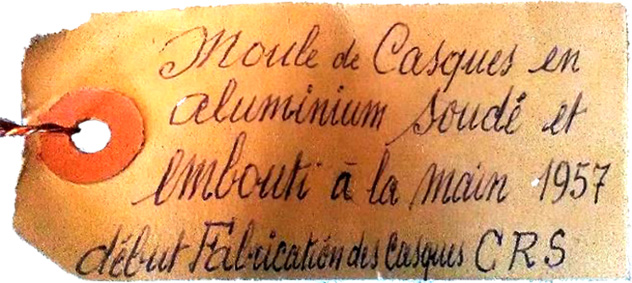 Moule de Casques en
aluminium soudé et
embouti à la main 1957
début Fabrication des Casques CRS